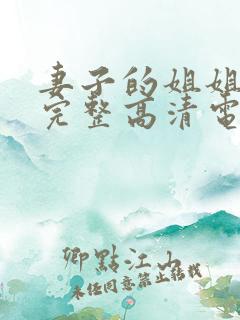 妻子的姐姐
完整高清电
卿點江山
未经同意禁止转载